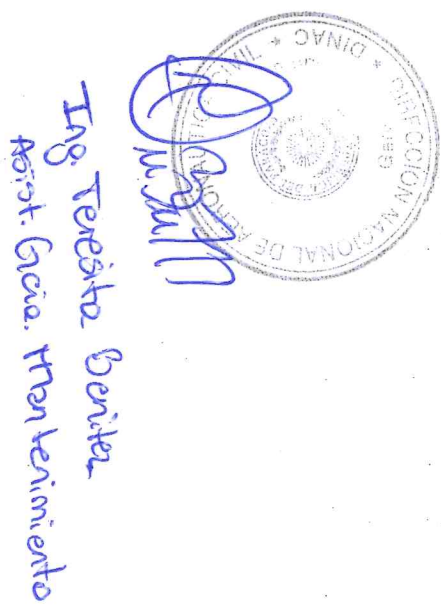 DIRECCION NACIONAL DE
* DINAC *
Ing. Teresita Benitez
Asist. Gcia. Mantenimiento